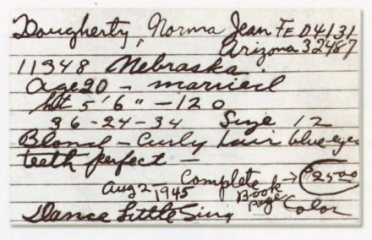 Dougherty, Norma Jean FE 04131
Arizona 32487
11348 Nebraska
Age 20 - married
Ht 5'6" - 120
36-24-34 Size 12
Blond - Curly hair blue eyes
teeth perfect -
Aug 2 1945 Complete → $25.00
Book
page Color
Dance Little Sing